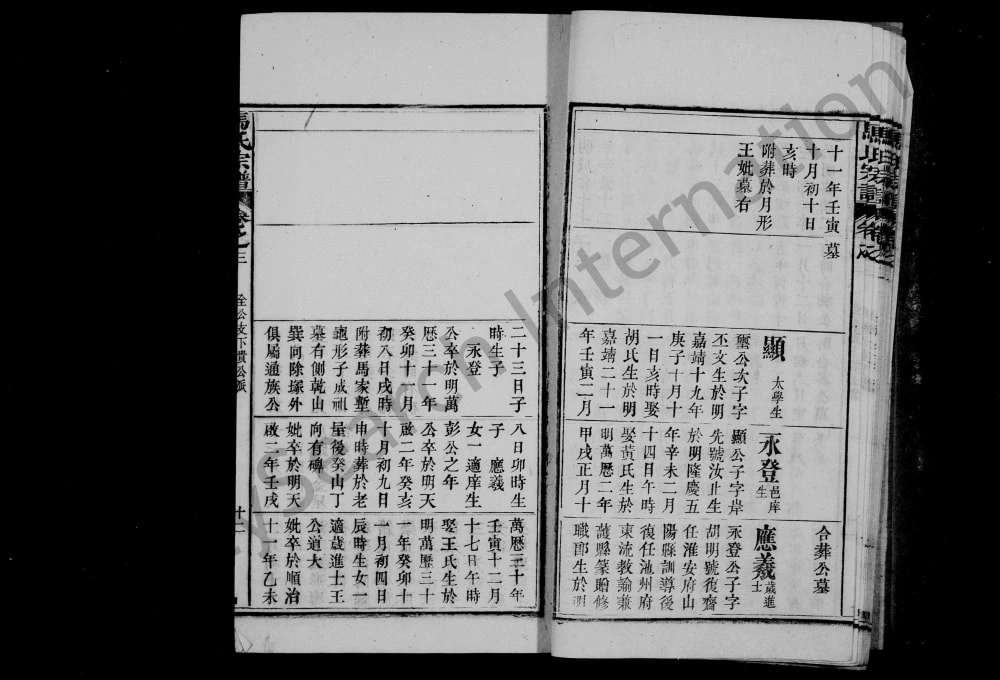 十一年壬寅
十月初十日
亥時
附葬於月形
王妣墓右
墓
顯 太學生
璽公次子字
丕文生於明
嘉靖十九年
庚子十月十
一日亥時娶
胡氏生於明
嘉靖二十一
年壬寅二月
永登 邑庠生
顯公子字岸
先號汝止生
於明隆慶五
年辛未二月
十四日午時
娶黃氏生於
明萬歷二年
甲戌正月十
合葬公墓
應義 歲進士
永登公子字
胡明號復齋
任淮安府山
陽縣訓導後
復任池州府
東流教諭兼
護縣篆聁修
職郎生於明
馬氏宗譜
卷之三
全公支下貴公派
十二
二十三日子
時生子
永登
公卒於明萬
歷三十一年
癸卯十一月
初八日戌時
附葬馬家塹
龜形子成祖
墓右側乾山
巽向除塚外
俱屬通族公
八日卯時生
子 應義
女一適庠生
彭公之年
公卒於明天
啟二年癸亥
十月初九日
申時葬於老
屋後癸山丁
向有碑
妣卒於明天
啟二年壬戌
萬歷三十年
壬寅十二月
十七日午時
娶王氏生於
明萬歷三十
一年癸卯十
一月初四日
辰時生女一
適歲進士王
公道大
妣卒於順治
十一年乙未